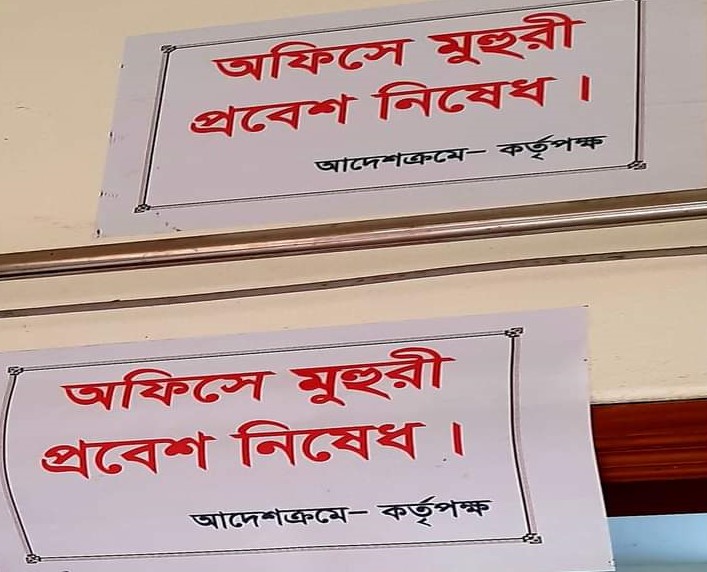 অফিসে মুহুরী
প্রবেশ নিষেধ।
আদেশক্রমে- কর্তৃপক্ষ
অফিসে মুহুরী
প্রবেশ নিষেধ।
আদেশক্রমে- কর্তৃপক্ষ